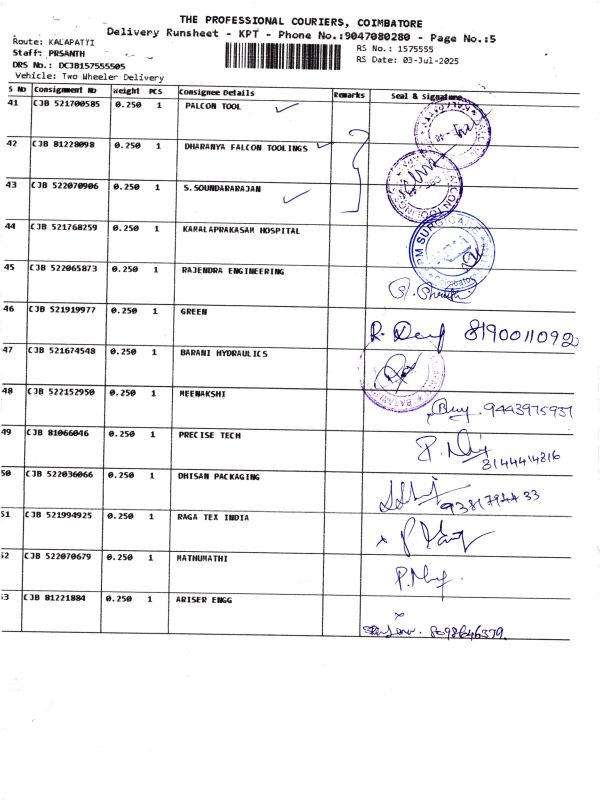 THE PROFESSIONAL COURIERS, COIMBATORE
Delivery Runsheet - KPT - Phone No.:9047080280 - Page No.:5
Route: KALAPATTI
RS No.: 1575555
Staff: PRSANTH
RS Date: 03-Jul-2025
DRS No.: DCJB157555505
Vehicle: Two Wheeler Delivery
S No Consignment No Weight PCS Consignee Details Remarks Seal & Signature
41 CJB 521700585 0.250 1 PALCON TOOL
42 CJB 81228098 0.250 1 DHARANYA FALCON TOOLINGS
43 CJB 522070906 0.250 1 S.SOUNDARARAJAN
44 CJB 521768259 0.250 1 KAMALAPRAKASAM HOSPITAL
45 CJB 522065873 0.250 1 RAJENDRA ENGINEERING
46 CJB 521919977 0.250 1 GREEN
8190011092
47 CJB 521674548 0.250 1 BARANI HYDRAULICS
48 CJB 522152950 0.250 1 MEENAKSHI
9443975937
49 CJB 81066046 0.250 1 PRECISE TECH
8144414816
50 CJB 522036066 0.250 1 DHISAN PACKAGING
9381794433
51 CJB 521994925 0.250 1 RAGA TEX INDIA
52 CJB 522070679 0.250 1 MATHUMATHI
53 CJB 81221884 0.250 1 ARISER ENGG